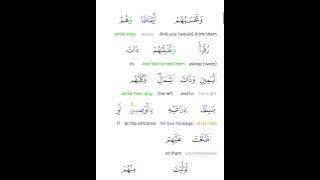 وَتَحْسَبُهُمْ أَيْقَاظًا وَهُمْ
while they awake And you (would) think them
رُقُودٌ وَنُقَلِّبُهُمْ ذَاتَ
to And We turned them asleep (were)
الْيَمِينِ وَذَاتَ الشِّمَالِ وَكَلْبُهُم
while their dog the left and to the right
بَاسِطٌ ذِرَاعَيْهِ بِالْوَصِيدِ لَوِ
If at the entrance his two forelegs stretched
اطَّلَعْتَ عَلَيْهِمْ
at them you had looked
لَوَلَّيْتَ مِنْهُمْ